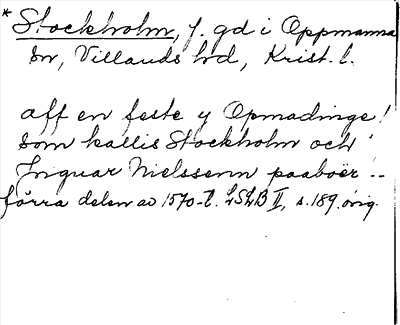 * Stockholm, f. gd i Oppmanna
sn, Villands hd, Krist. l.
aff en feste y Opmadinge!
som kallis Stockholm och
Inguar Nielssenn paaboer!--
förra delen av 1570-t. LSLB II, s. 189. orig.